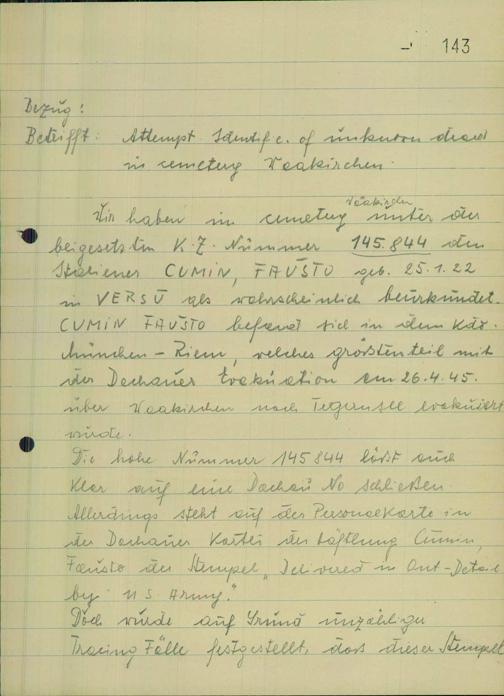 - 143
Bezug:
Betrifft: Attempt Identific. of unknown dead
in cemetery Waakirchen.
Waakirchen
Wir haben im cemetery unter der
beigesetzten K.Z. Nummer 145.844 den
Italiener CUMIN, FAUSTO geb. 25.1.22
in VERSŪ als wahrscheinlich beurkundet.
CUMIN FAUSTO befand sich in dem Kdo.
München-Riem, welches grösstenteil mit
der Dachauer Evakuation am 26.4.45.
über Waakirchen nach Tegernsee evakuiert
wurde.
Die hohe Nummer 145844 lässt auch
klar auf eine Dachau No schließen.
Allerdings steht auf der Personalkarte in
der Dachauer Kartei des Häftling Cumin,
Fausto der Stempel "Delivered in Out-Detail
by US Army."
Doch wurde auf Grund unzähliger
Tracing Fälle festgestellt, dass dieser Stempel